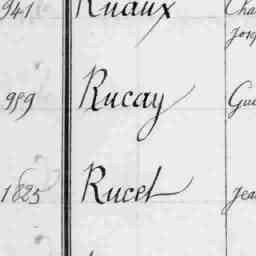 941 Ruaux Cha
Jos
959 Rucay Gui
1825 Rucel Jea